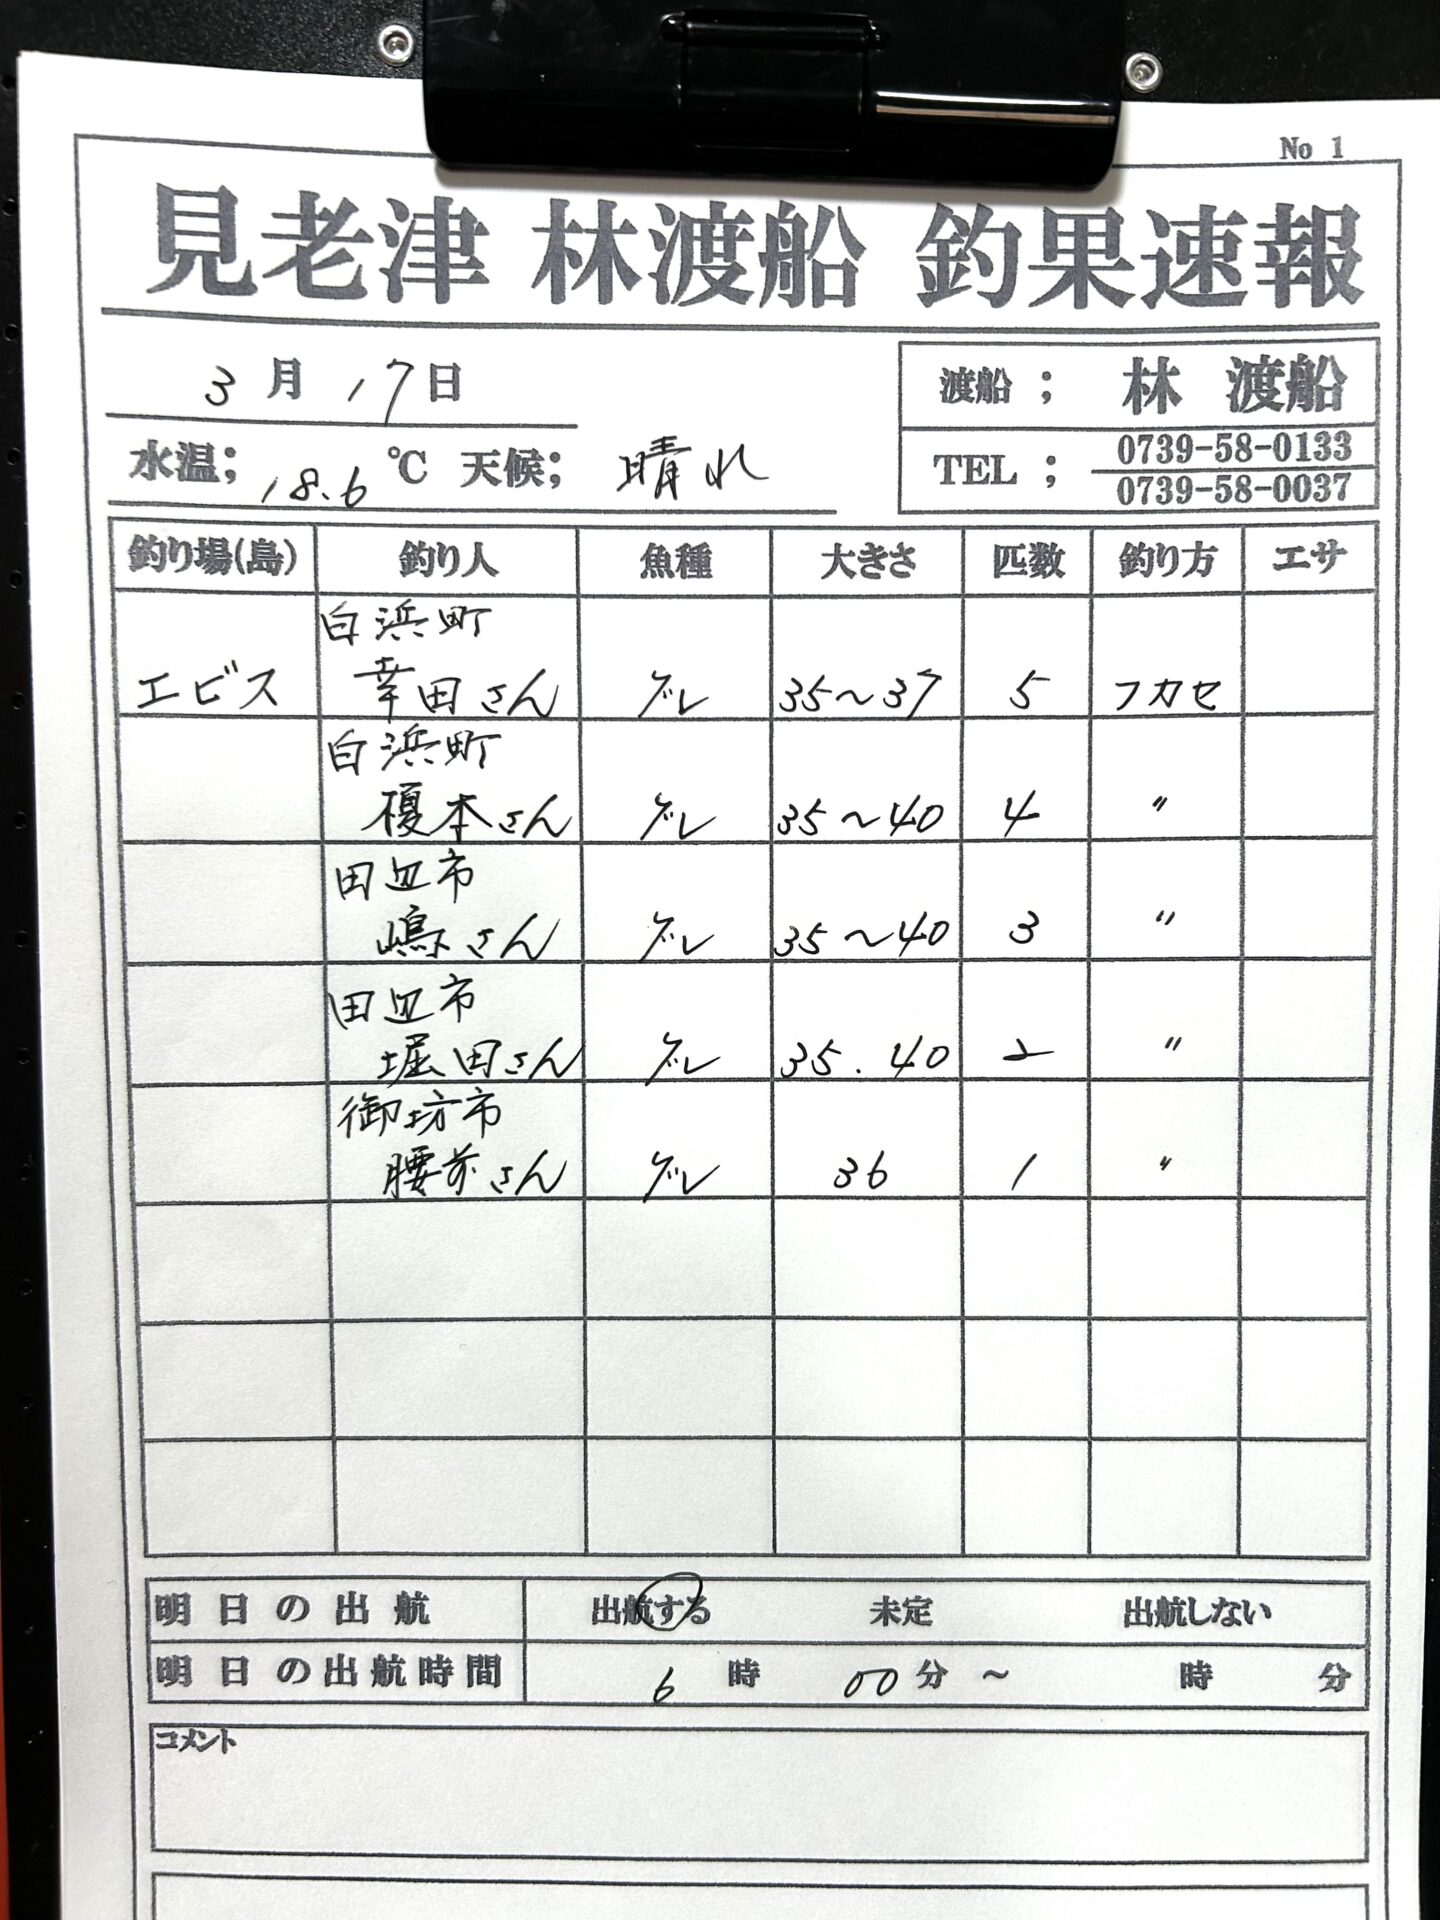 No 1
見老津 林渡船 釣果速報
3月17日
渡船 ; 林 渡船
水温; 18.6 ℃ 天候; 晴れ
TEL ; 0739-58-0133
0739-58-0037
釣り場(島) 釣り人 魚種 大きさ 匹数 釣り方 エサ
白浜町
エビス 幸田さん グレ 35~37 5 フカセ
白浜町
榎本さん グレ 35~40 4 〃
田辺市
嶋さん グレ 35~40 3 〃
田辺市
堀田さん グレ 35.40 2 〃
御坊市
腰前さん グレ 36 1 〃
明日の出航 出航する 未定 出航しない
明日の出航時間 6 時 00 分 ~ 時 分
コメント